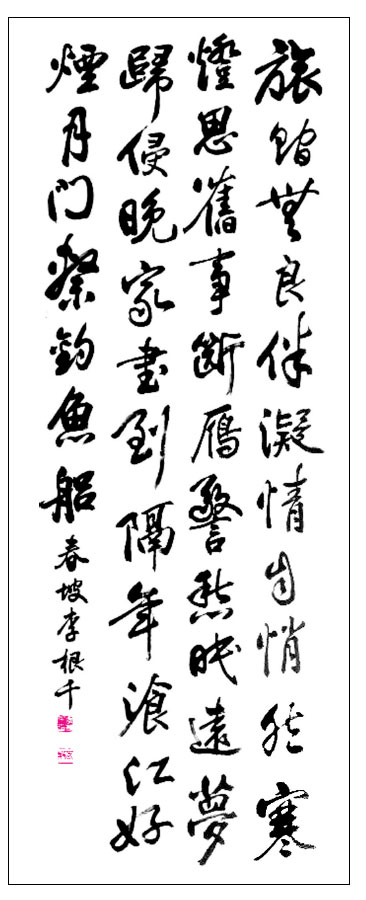 旅館無良伴凝情自悄然寒
燈思舊事斷鴈警愁眠遠夢
歸侵晚家書到隔年滄江好
煙月门繫釣魚船
春坡李根千